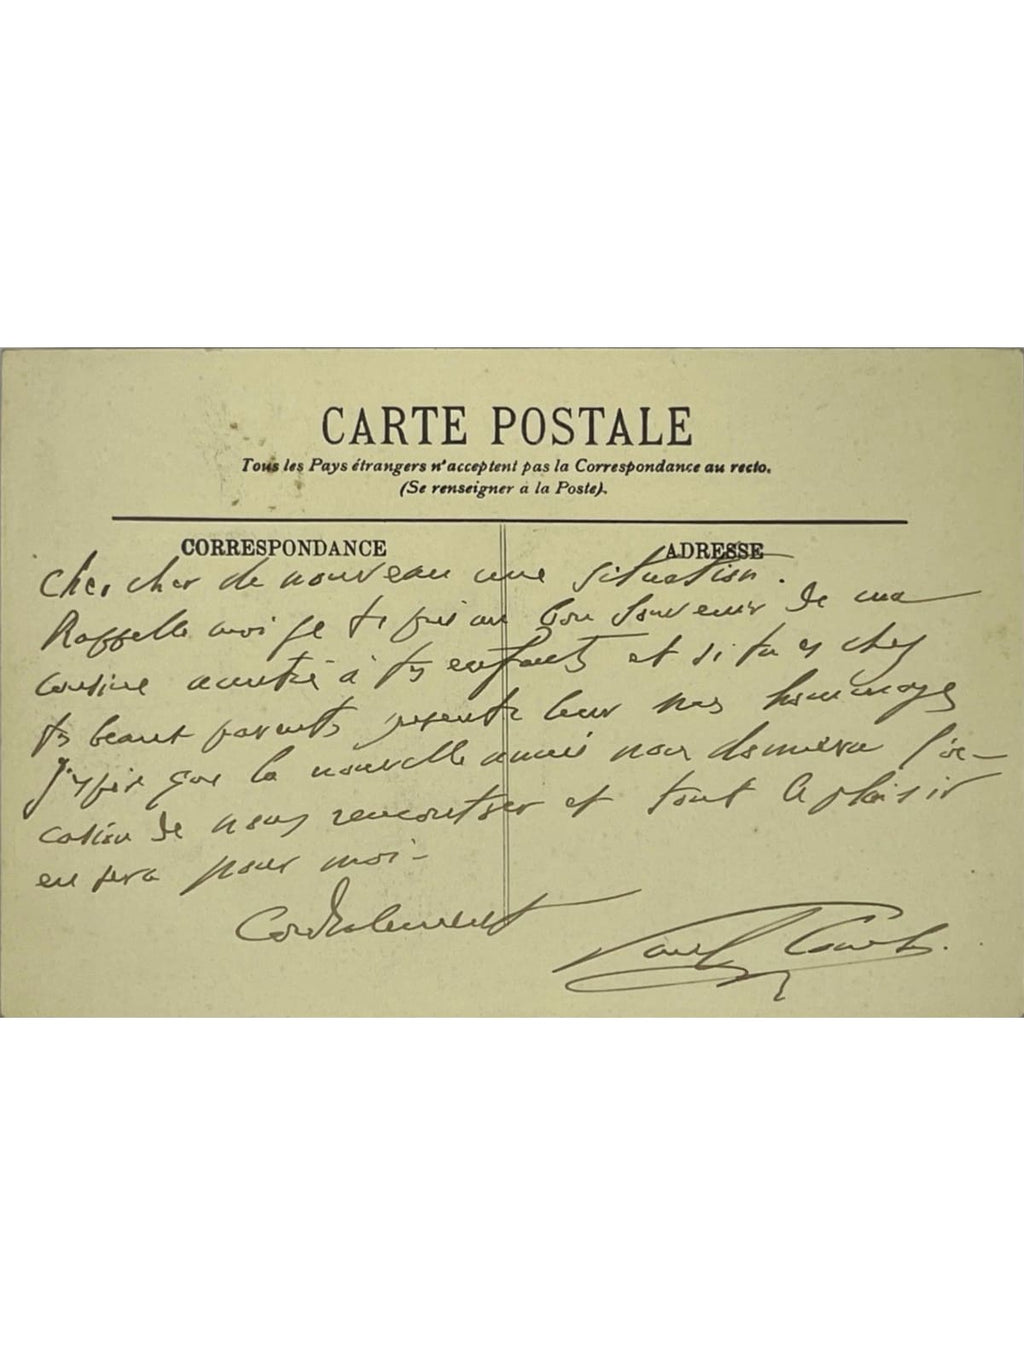 CARTE POSTALE
Tous les Pays étrangers n'acceptent pas la Correspondance au recto.
(Se renseigner à la Poste).
CORRESPONDANCE
ADRESSE
chercher de nouveau une situation.
Rappelle moi je te prie au bon souvenir de ma
cousine amitié à tes enfants et si tu es chez
tes beaux parents présente leur nos hommages
J'espère que la nouvelle année nous donnera l'oc-
casion de nous rencontrer et tout le plaisir
en sera pour moi-
Cordialement
Paul